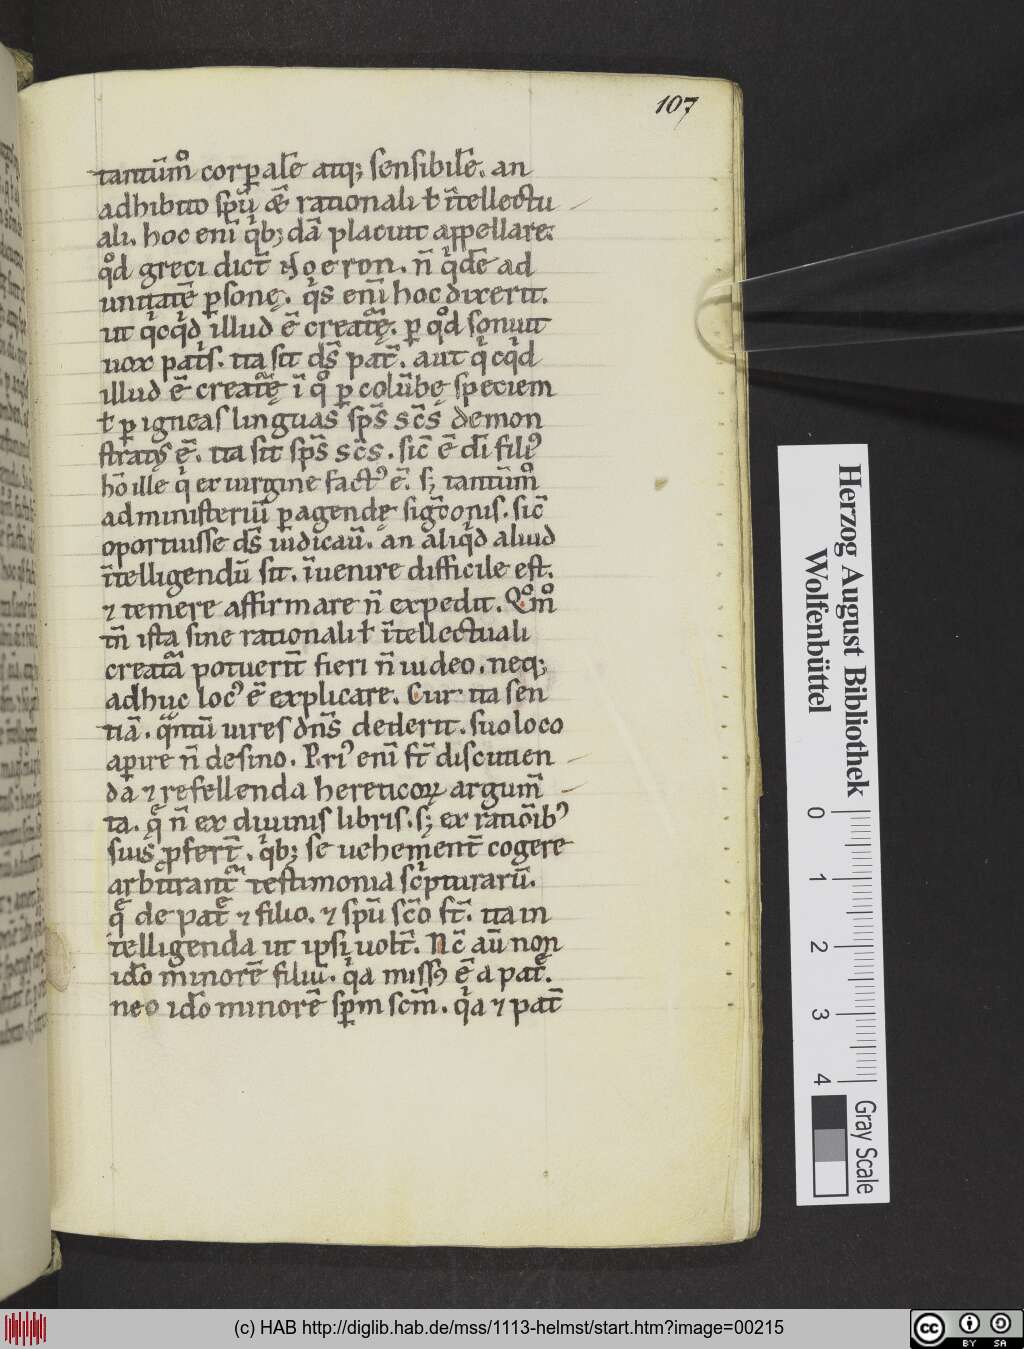 107
tantūmͦ corꝑale᷃ atqꝫ sensibile᷃. an
adhibito spū ēē rationali ł ītellectu
ali. hoc eni᷃ qͥbꝫdā placuit appellare.
qͦd greci dicт̄ noeron. n̄ qͥdē ad
unitatē ꝑsonę. qͥs enī hoc dixerit.
ut qͥcqͥd illud ē creatᷓę. ꝑ qͦd sonuit
uox patͥs. ita sit ds̄ pat̄. aut qͥcqͥd
illud ē creatᷓę ī qͦ ꝑ colūbę speciem
ł ꝑ igneas linguas sps̄ scs̄ demon
stratꝰ ē. ita sit sps̄ scs̄. sic̄ ē di᷃ filiꝰ
hō ille qͥ ex uirgine factꝰ ē. sꝫ tantūmͦ
administeriū ꝑagendę sigt̄onis. sic̄
oportuisse ds̄ iudicau᷃. an aliqͥd aliud
ītelligendū sit. īuenire difficile est.
⁊ temere affirmare n̄ expedit. Qͦmͦ
tn̄ ista sine rationali ł ītellectuali
creatᷓa potuerit̄ fieri n̄ uideo. neqꝫ
adhuc locꝰ ē explicare. Cur ita sen
tiā. qᷓntū uires dns̄ dederit. suo loco
aꝑire n̄ desino. Priꝰ eni᷃ st̄ discutien
da ⁊ refellenda hereticoꝝ argum̄
ta. qͤ n̄ ex diuinis libris. sꝫ ex ratiōibꝰ
suis ꝓfert̄. qͥbꝫ se uehement̄ cogere
arbitrant᷑ testimonia scͥpturarū.
qͤ de patͤ ⁊ filio. ⁊ spū sc̄o st̄. ita in
telligenda ut ipsi uolt̄. Nc̄ au᷃ non
idō minorē filiū. qͥa missꝰ ē a patͤ.
neo idō minorē spm̄ scm̄. qͥa ⁊ pat̄
Herzog August Bibliothek
Wolfenbüttel
0 1 2 3 4
Gray Scale
(c) HAB http://diglib.hab.de/mss/1113-helmst/start.htm?image=00215
cc BY SA